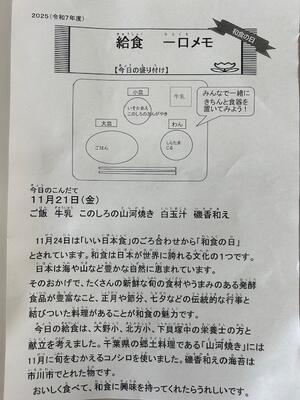 2025(令和7年度)
給食 一口メモ
和食の日
【今日の盛り付け】
小皿
いそかあえ
このしろのさんがやき
牛乳
みんなで一緒に
きちんと食器を
置いてみよう!
大皿
ごはん
わん
しらたま
じる
今日のこんだて
11月21日(金)
ご飯 牛乳 このしろの山河焼き 白玉汁 磯香和え
11月24日は「いい日本食」のごろ合わせから「和食の日」
とされています。和食は日本が世界に誇れる文化の1つです。
日本は海や山など豊かな自然に恵まれています。
そのおかげで、たくさんの新鮮な旬の食材やうまみのある発酵
食品が豊富なこと、正月や節分、七夕などの伝統的な行事と
結びついた料理があることが和食の魅力です。
今日の給食は、大野小、北方小、下貝塚中の栄養士の方と
献立を考えました。千葉県の郷土料理である「山河焼き」には
11月に旬をむかえるコノシロを使いました。磯香和えの海苔は
市川市でとれた物です。
おいしく食べて、和食に興味を持ってくれたらうれしいです。